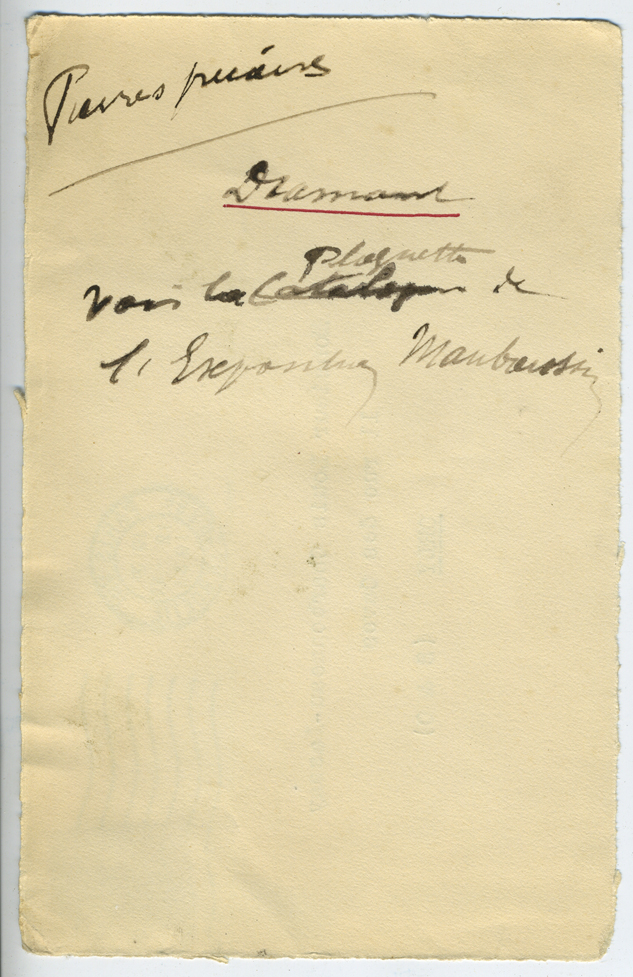 Pierres précieuses
Diamant
Plaquette
Voir la Catalogue de
l'Exposition Mauboussin